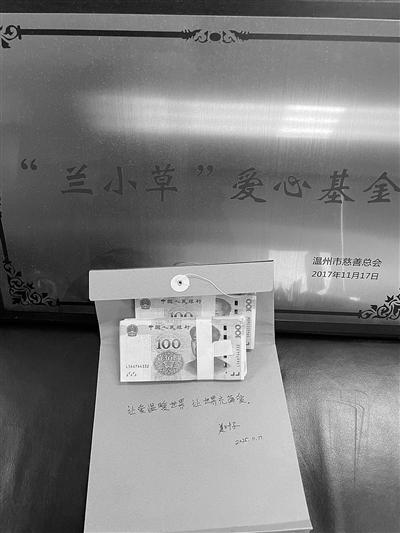 “兰小草”爱心基金
温州市慈善总会
2017年11月17日
中国人民银行
100
中国人民银行
100
100
让爱温暖世界 让世界充满爱。
2025.11.17